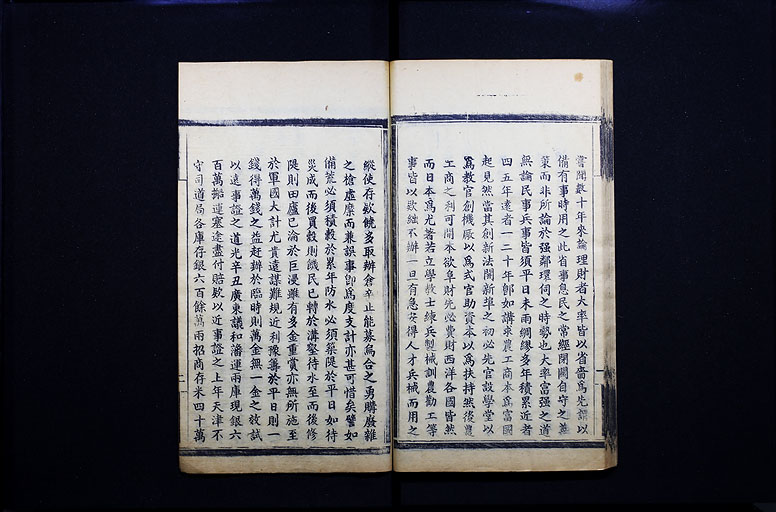 嘗聞數十年來論理財者大率皆以省嗇為先謀以
備有事時用之此省事息民之常經閉關自守之善
策而非所論於强鄰環伺之時勢也大率富强之道
無論民事兵事皆須平日未雨綢繆多年積累近者
四五年遠者一二十年即如講求農工商本爲富國
起見然當其創新法開新埠之初必先官設學堂以
爲教官創機厰以爲式官助資本以爲扶持然後農
工商之利可開本欲阜財先必費財西洋各國皆然
而日本爲尤著若立學教士練兵製械訓農勸工等
事皆以欵絀不辦一旦有急安得人才兵械而用之
縱使存欵饒多取辦倉卒止能募烏合之勇購廢雜
之槍虛糜而兼誤事即爲度支計亦甚可惜矣譬如
備荒必須積穀於累年防水必須築隄於平日如待
災成而後買穀則饑民已轉於溝壑待水至而後修
隄則田廬已淪於巨浸雖有多金重賞亦無所施至
於軍國大計尤貴遠謀難規近利豫籌於平日則一
錢得萬錢之益赶辦於臨時則萬金無一金之效試
以遠事證之道光辛丑廣東議和藩運兩庫現銀六
百萬搬運塞途盡付賠欵以近事證之上年天津不
守司道局各庫存銀六百餘萬兩招商存米四十萬